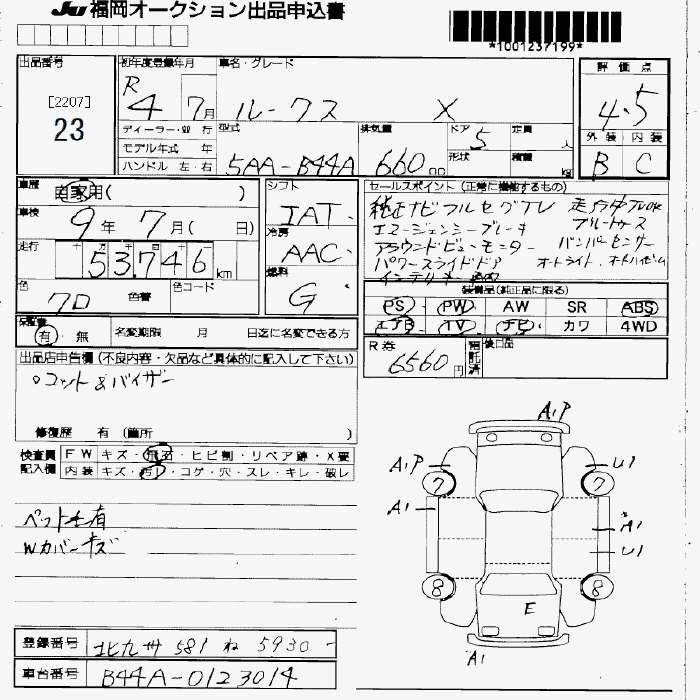 JU 福岡オークション出品申込書
*1001237199*
出品番号
[2207]
23
初年度登録年月
R 4 年 7月
車名・グレード
ルークス X
評価点
4.5
外装 内装
B C
ディーラー・並行
モデル年式 年
ハンドル 左・右
型式
5AA-B44A
排気量
660 CC
ドア
5
形状
定員
人
積載
kg
車歴
自家用( )
車検
9年 7月( 日)
走行
十万 万 千 百 十
53,746 km
色
クロ
色替
色コード
シフト
IAT
冷房
AAC
燃料
G
セールスポイント (正常に機能するもの)
純正ナビ フルセグTV 走行中TVOK
エマージェンシーブレーキ ブルートゥース
アラウンドビューモニター バンパーセンサー
パワースライドドア オートライト、オートハイビーム
インテリキー
装備品(純正品に限る)
PS PW AW SR ABS
エアB TV ナビ カワ 4WD
保証書
有・無
名変期限 月 日迄に名変できる方
R券
6560円
預託済
後日品
出品店申告欄 (不良内容・欠品など具体的に記入して下さい)
○マット&バイザー
修復歴 有 (箇所 )
検査員記入欄
FW キズ・飛石・ヒビ割・リペア跡・X要
内装 キズ・汚レ・コゲ・穴・スレ・キレ・破レ
ペット毛有
Wカバーキズ
A1P
A1P U1
7 7
A1 A1
U1
8 8
E
A1
登録番号 北九州 581 ね 5930
車台番号 B44A-0123014